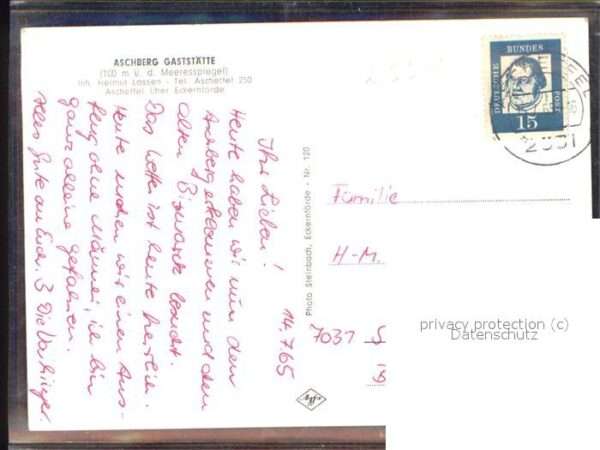 ASCHBERG GASTSTÄTTE
(100 m ü. d. Meeresspiegel)
Inh. Helmut Lassen - Tel. Ascheffel 250
Ascheffel über Eckernförde
14.7.65
Ihr Lieben!
Heute haben wir nun den
Aschberg erklommen und den
alten Bismarck besucht.
Das Wetter ist heute herrlich.
Heute machen wir einen Aus-
flug ohne Männer, ich bin
ganz alleine gefahren.
Alles Gute an Euch. 3 Die
Photo Steinbach, Eckernförde - Nr. 120
DEUTSCHE
BUNDES
POST
15
2331
Familie
H-M.
7031 S
privacy protection (c)
Datenschutz